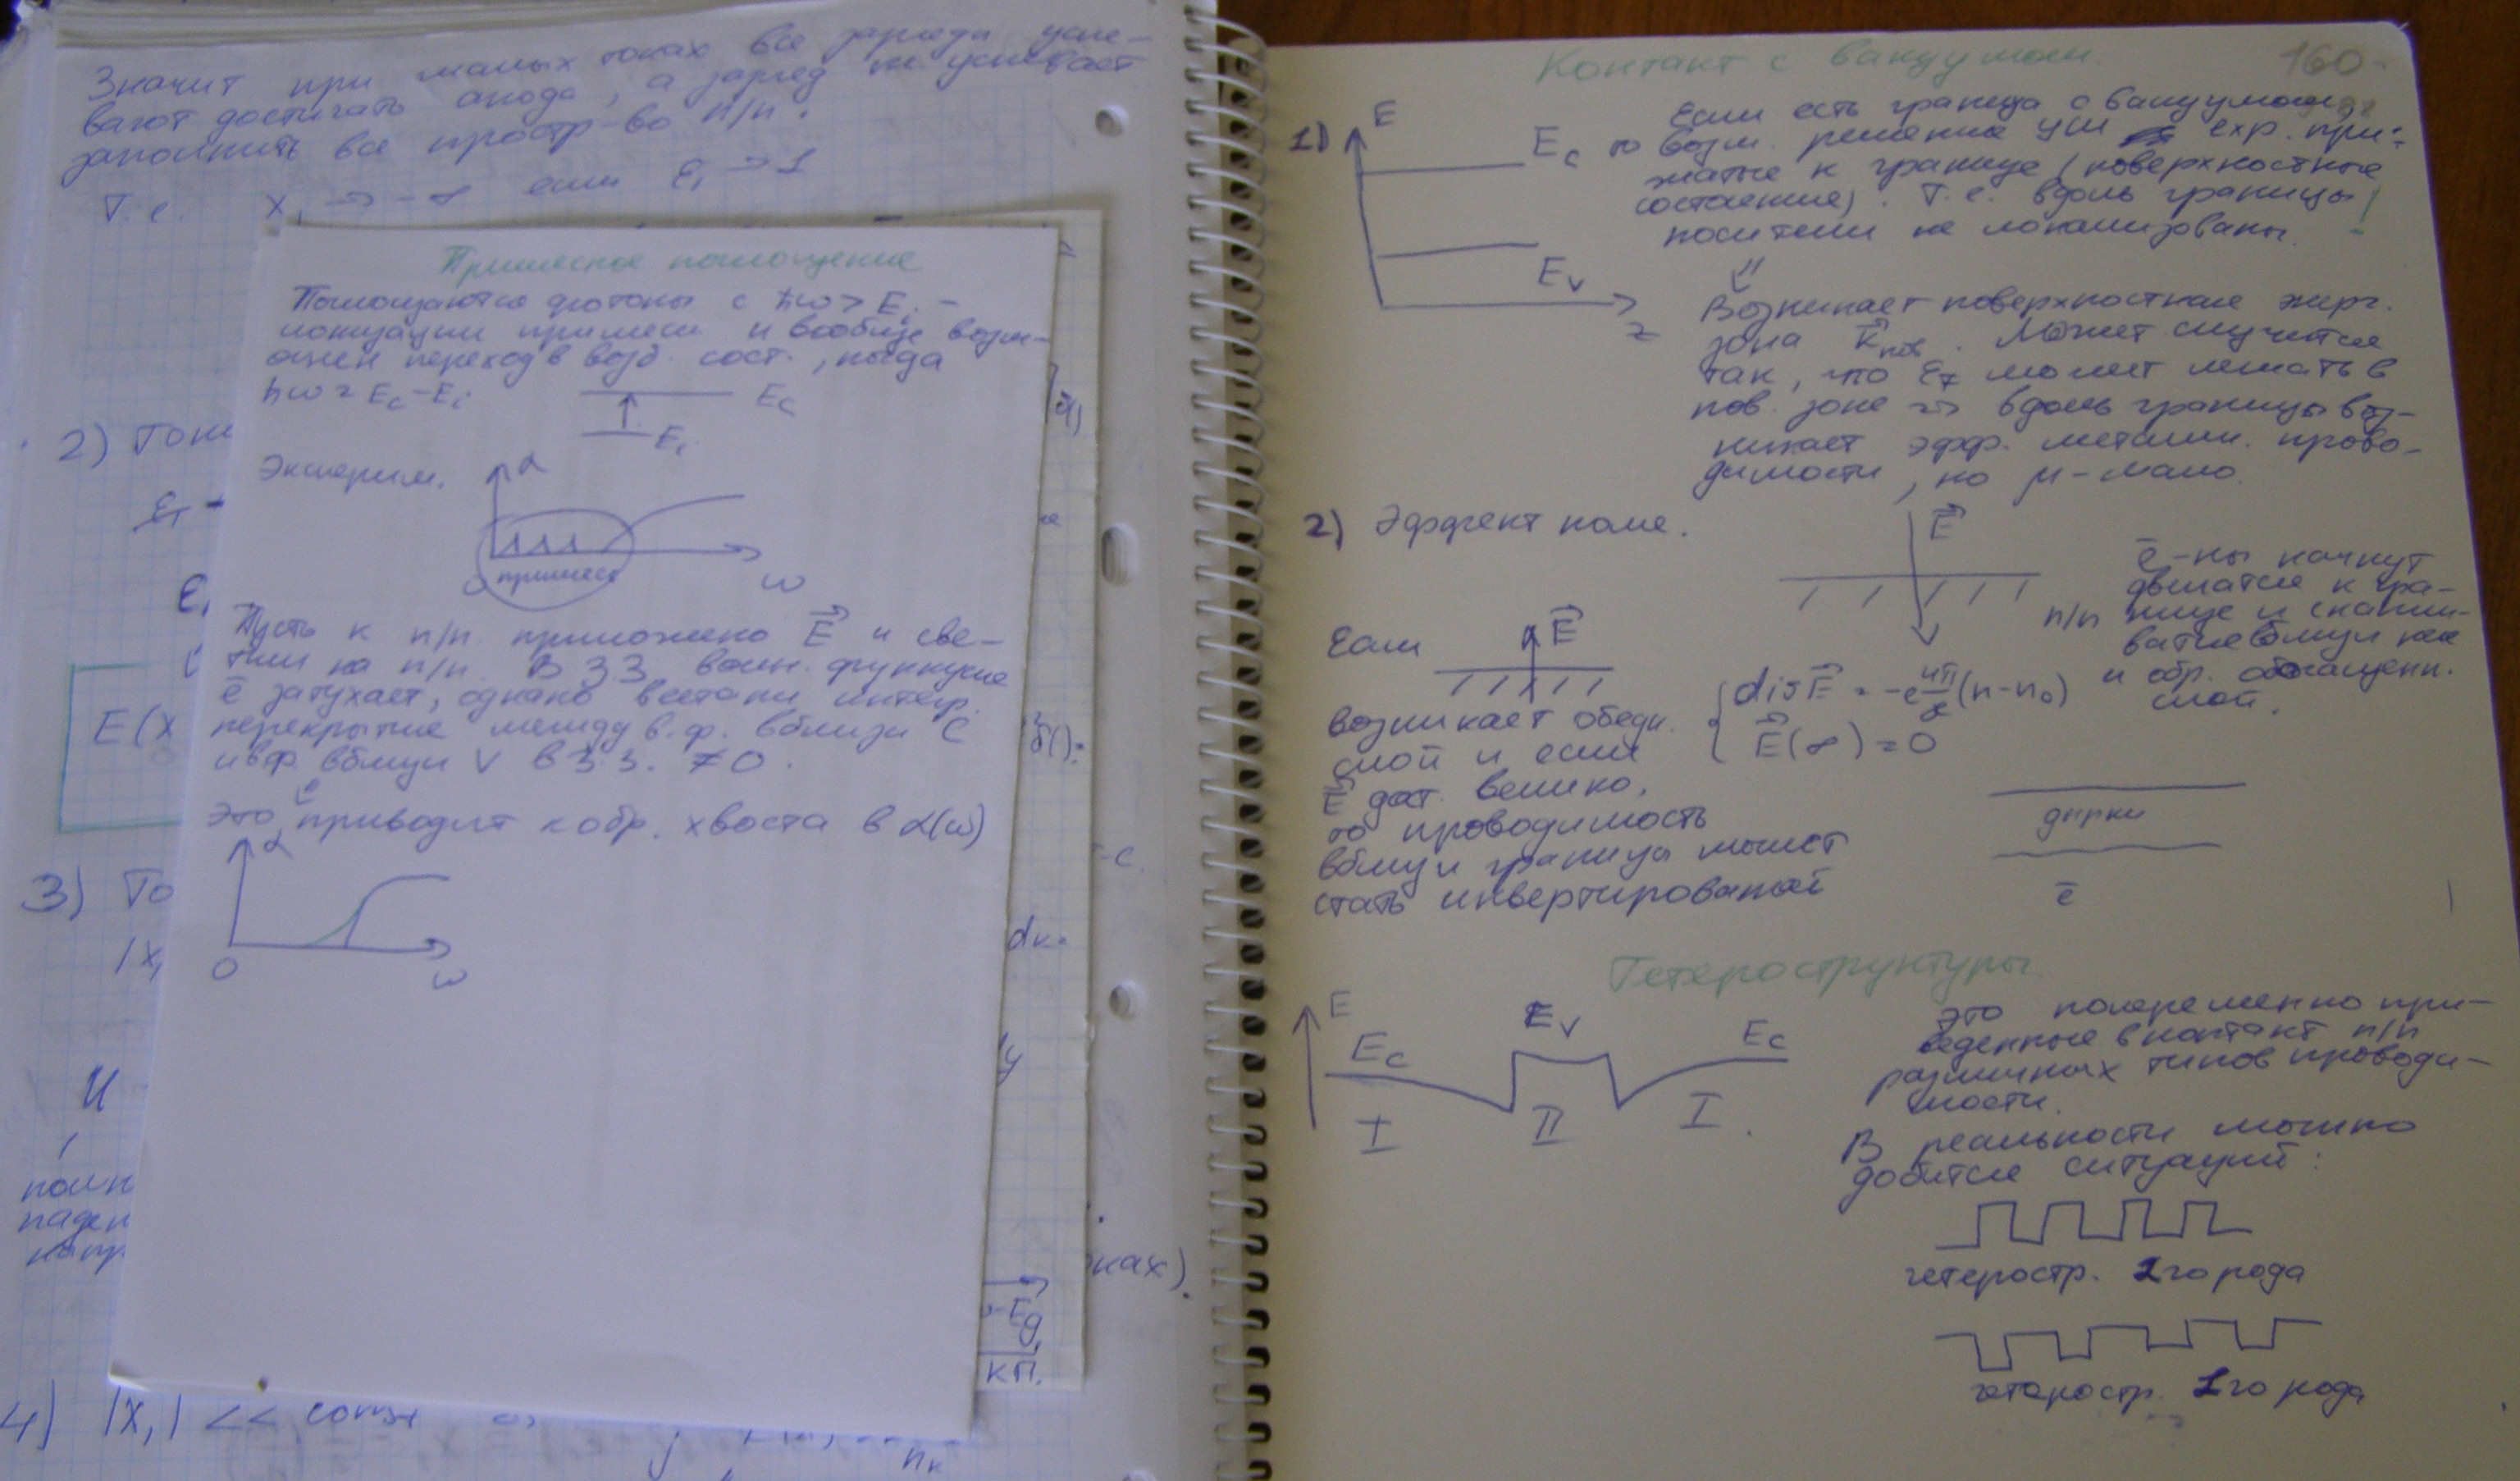 Значит при малых токах все заряды успе-
вают достигать анода, а заряд не успевает
заполнить все простр-во п/п.
Т.е. x₁ → -∞ если ε₁ → 1
2) Токи
ε₁
E(x
3) То
|x₁
И
полн
паден
напр
4) |x₁| << const
Примесное поглощение
Поглощаются фотоны с ħω > Eᵢ -
ионизации примеси и вообще возм-
ожен переход в возб. сост., когда
ħω = E_c - Eᵢ
E_c
Eᵢ
Эксперим.
α
0 примесь ω
Пусть к п/п приложено E⃗ и све-
тим на п/п. В З.З. волн. функция
ē затухает, однако всетаки интегр.
перекрытие между в.ф. вблизи C
и вф вблизи V в З.З. ≠ 0.
⇓
Это приводит к обр. хвоста в α(ω)
α
0 ω
dк.
-Eg
кп.
нах).
nк
160
Контакт с вакуумом.
1) E
E_c
E_v
z
Если есть граница с вакуумом,
то возм. решение УШ exp. при-
жатые к границе (поверхностные
состояния). Т.е. вдоль границы !
носители не локализованы.
⇓
Возникает поверхностная энерг.
зона k⃗пов. Может случится
так, что ε_F может лежать в
пов. зоне ⇒ вдоль границы воз-
никает эфф. металлич. прово-
димости, но μ - мало.
2) Эффект поля.
E⃗
п/п
ē-ны начнут
двигатся к гра-
нице и скапли-
ватся вблизи нее
и обр. обогащенн.
слой.
Если E⃗
возникает обедн.
слой и если
E⃗ дост. велико,
то проводимость
вблизи границы может
стать инвертированой
div E⃗ = -e 4π/ε (n-n₀)
E⃗(∞) = 0
дырки
ē
Гетероструктуры.
E
E_c E_v E_c
I II I
Это попеременно при-
веденные в контакт п/п
различных типов проводи-
мости.
В реальности можно
добится ситуаций:
гетеростр. 2го рода
гетеростр. 1го рода